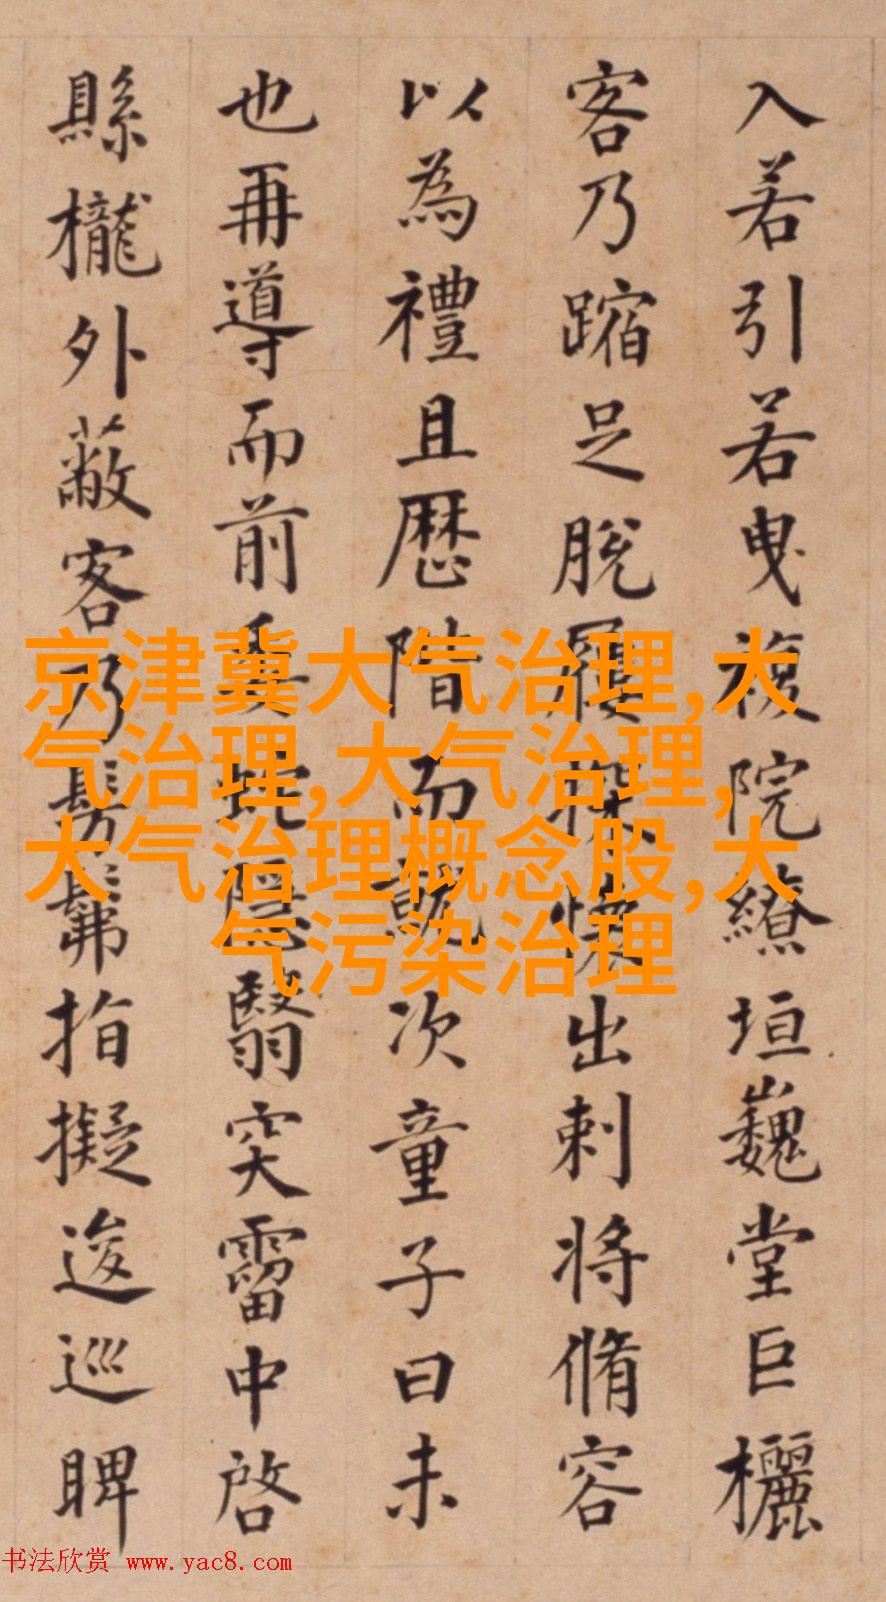 入若引若曳複院繚垣巍堂巨欐
客乃蹜足脫屨探懷出刺將脩容
以為禮且歷階而就次童子曰未
也再導而前委蛇隱翳突霤中啓
縣櫳外蔽客乃髣髴指擬逡巡睥
京津冀大气治理,大
气治理,大气治理,
大气治理概念股,大
气污染治理
书法欣赏 www.yac8.com